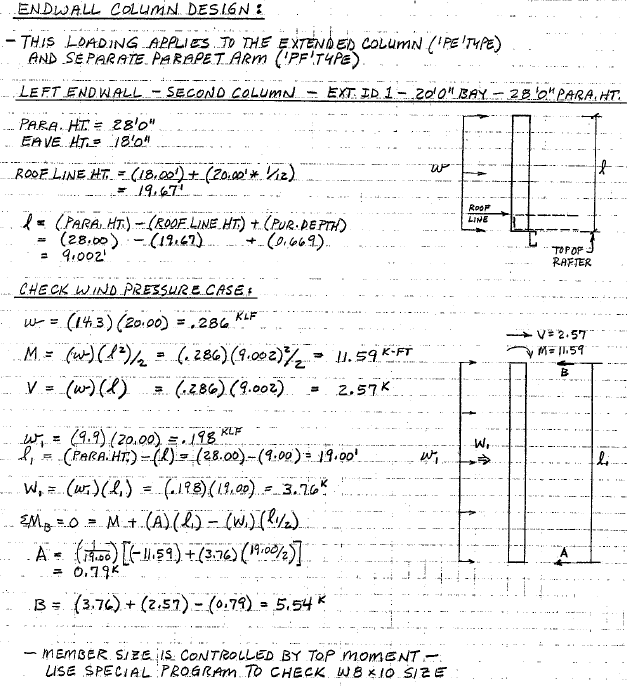 ENDWALL COLUMN DESIGN:
- THIS LOADING APPLIES TO THE EXTENDED COLUMN ('PE' TYPE)
AND SEPARATE PARAPET ARM ('PF' TYPE).
LEFT ENDWALL - SECOND COLUMN - EXT. ID 1 - 20'0" BAY - 28'0" PARA. HT.
PARA. HT. = 28'0"
EAVE HT. = 18'0"
ROOF LINE HT. = (18.00') + (20.00' * 1/12)
= 19.67'
l = (PARA. HT.) - (ROOF LINE HT.) + (PUR. DEPTH)
= (28.00) - (19.67) + (0.669)
= 9.002'
w
l
ROOF
LINE
TOP OF
RAFTER
CHECK WIND PRESSURE CASE:
w = (14.3)(20.00) = .286 KLF
M = (w)(l²)/2 = (.286)(9.002)²/2 = 11.59 K-FT
V = (w)(l) = (.286)(9.002) = 2.57 K
w₁ = (9.9)(20.00) = .198 KLF
l₁ = (PARA. HT.) - (l) = (28.00) - (9.00) = 19.00'
W₁ = (w₁)(l₁) = (.198)(19.00) = 3.76 K
ΣM_B = 0 = M + (A)(l₁) - (W₁)(l₁/2)
A = (1/19.00)[(-11.59) + (3.76)(19.00/2)]
= 0.79 K
B = (3.76) + (2.57) - (0.79) = 5.54 K
V = 2.57
M = 11.59
B
w₁
W₁
l₁
A
- MEMBER SIZE IS CONTROLLED BY TOP MOMENT -
USE SPECIAL PROGRAM TO CHECK W8×10 SIZE